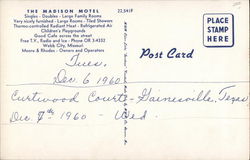 THE MADISON MOTEL
Singles - Doubles - Large Family Rooms
Very nicely furnished - Large Rooms - Tiled Showers
Thermo-controlled Radiant Heat - Refrigerated Air
Children's Playgrounds
Good Cafe across the street
Free T.V., Radio and Ice - Phone OR 3-4352
Webb City, Missouri
Moore & Rhodes - Owners and Operators
22,541F
PLACE
STAMP
HERE
Post Card
Tues.
Dec. 6 1960
Curtwood Courts - Gainesville, Texas
Dec. 7th, 1960 - Wed.